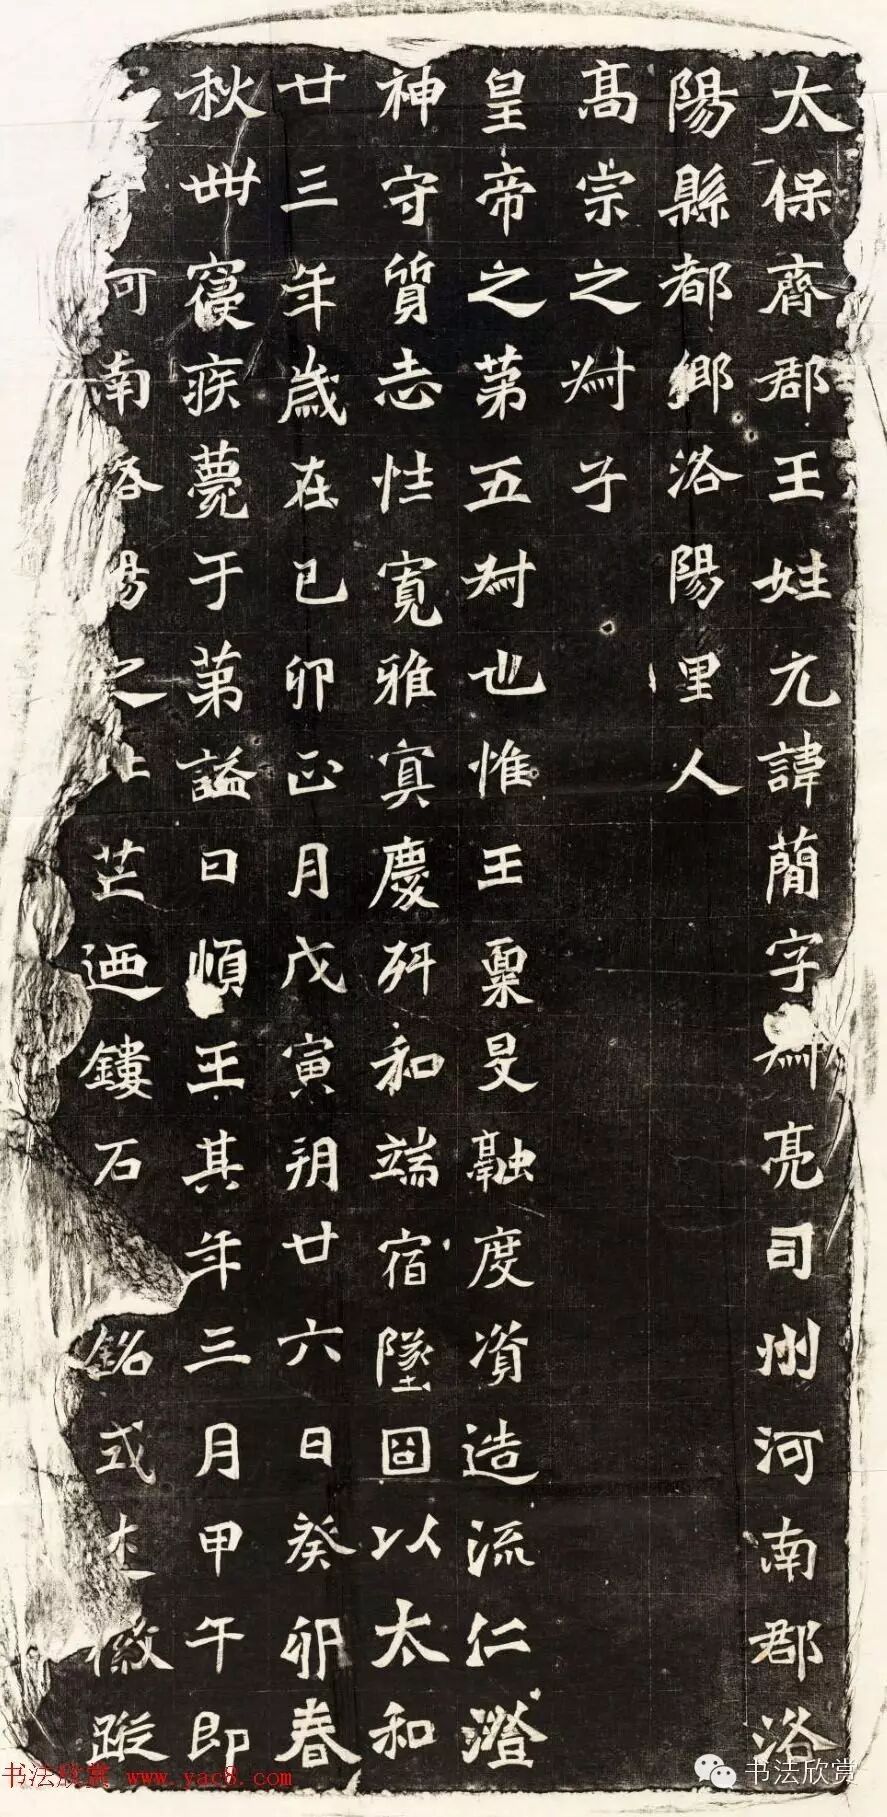 太保齊郡王姓元諱簡字叔亮司州河南郡洛
陽縣都鄉洛陽里人
高宗之叔子
皇帝之第五叔也惟王稟旻融度資造流仁澄
神守質志性寬雅寘慶舛和端宿墜固以太和
廿三年歲在己卯正月戊寅朔廿六日癸卯春
秋卌寢疾薨于第謚曰順王其年三月甲午即
河南洛陽之北芒迺鏤石銘式述徽蹤
书法欣赏 www.yac8.com
书法欣赏